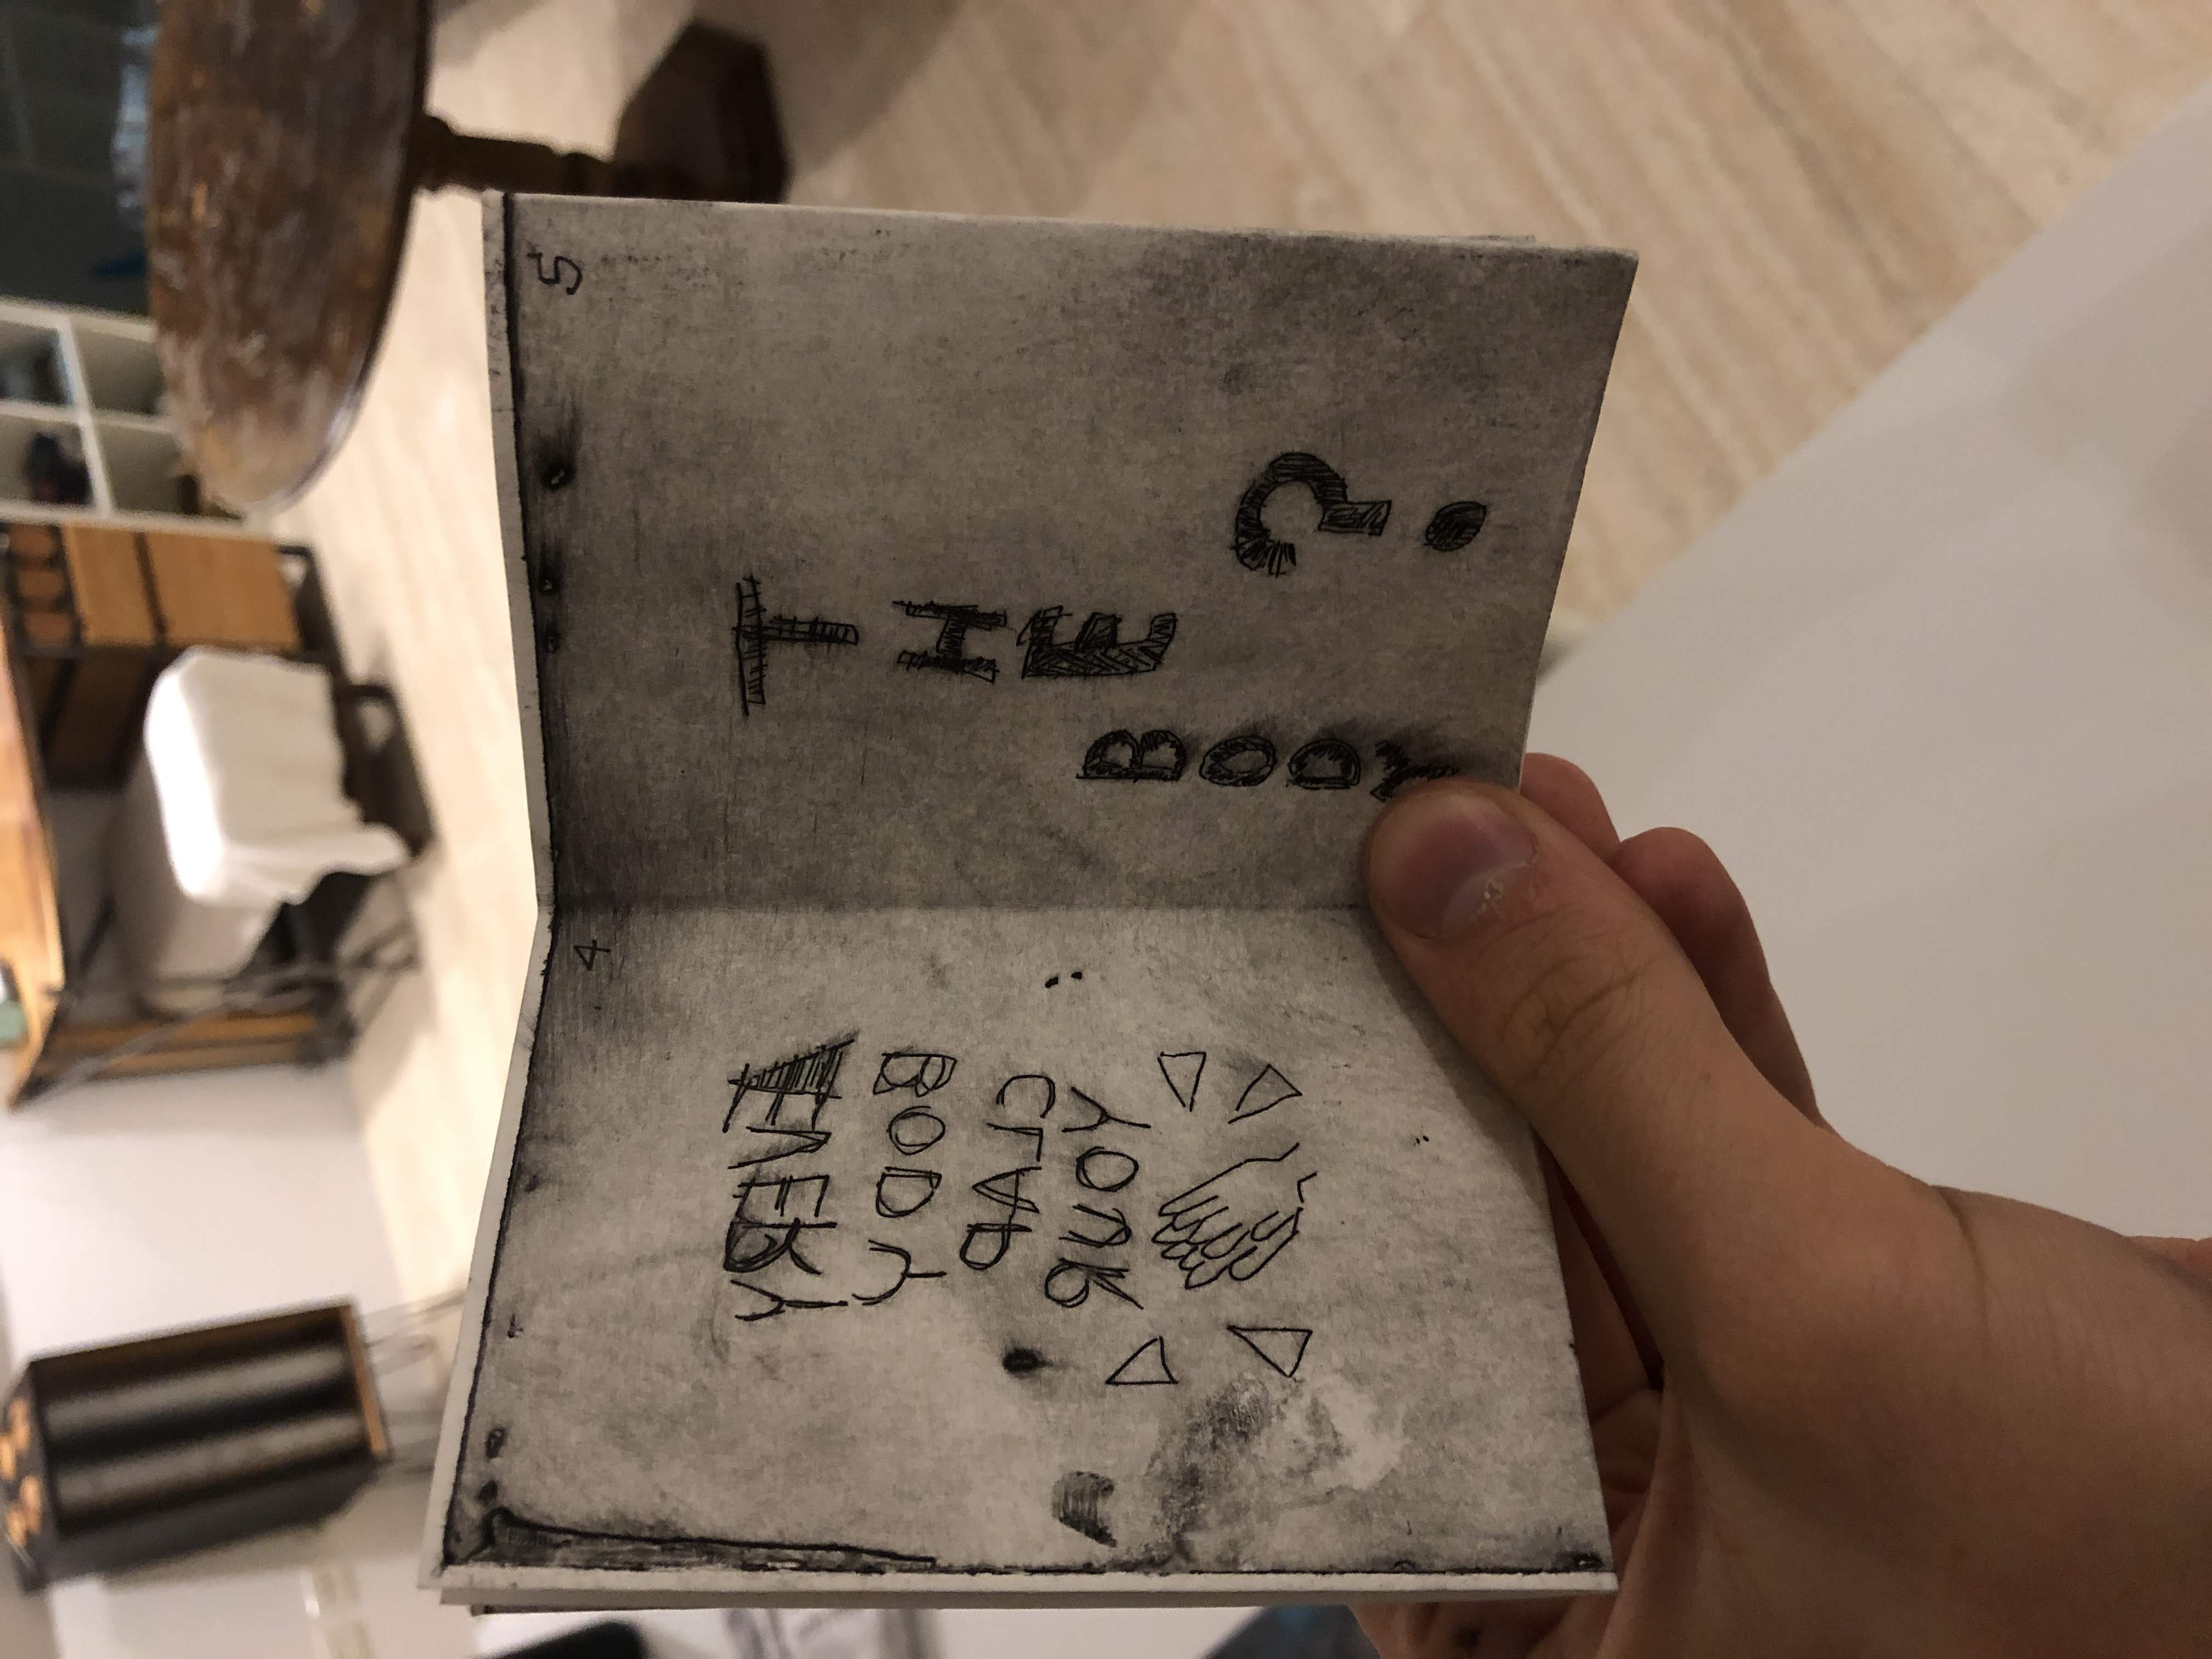 4
EVERY
BODY
CLAP
YOUR
5
THE
BODY
?